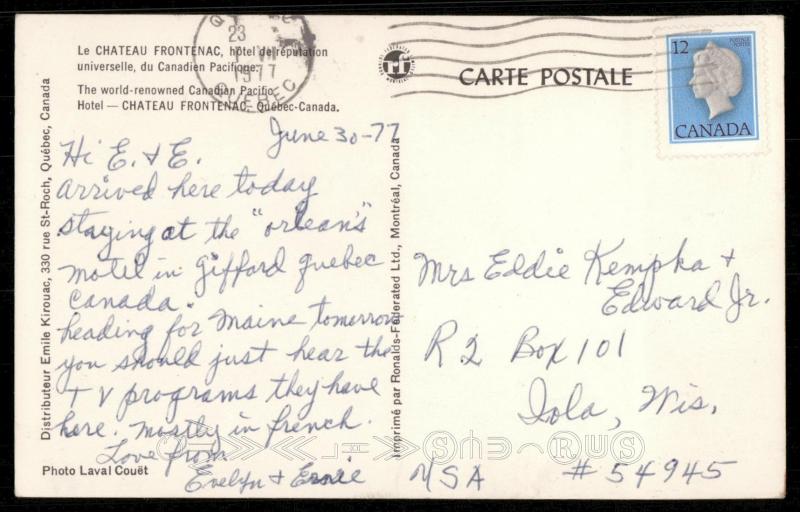 Le CHATEAU FRONTENAC, hôtel de réputation
universelle, du Canadien Pacifique.
The world-renowned Canadian Pacific
Hotel — CHATEAU FRONTENAC, Québec-Canada.
June 30-77
Hi E. & E.
arrived here today
staying at the "orlean's"
motel in Gifford quebec
Canada.
heading for Maine tomorrow
you should just hear the
TV programs they have
here. mostly in french.
Love from
Evelyn & Ernie
Photo Laval Couët
Distributeur Emile Kirouac, 330 rue St-Roch, Québec, Canada
Imprimé par Ronalds-Federated Ltd., Montréal, Canada
23
1977
QUEBEC
rf
CARTE POSTALE
12
POSTAGE
POSTES
CANADA
Mrs Eddie Kempka &
Edward Jr.
R2 Box 101
Iola, Wis.
USA #54945